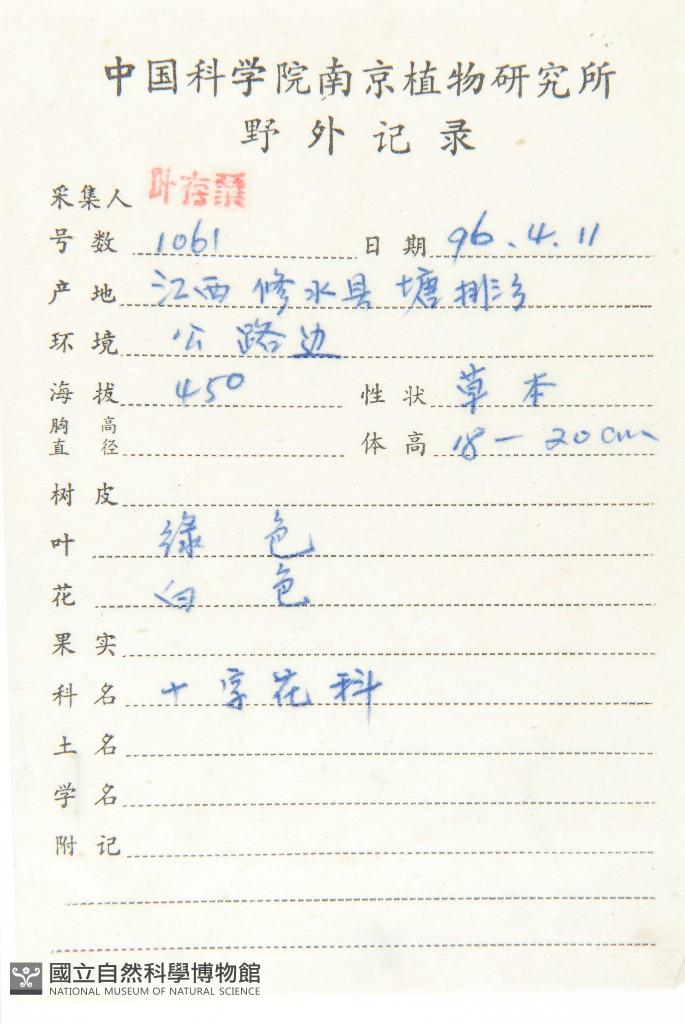 中国科学院南京植物研究所
野外记录
采集人 叶存粟
号数 1061 日期 96.4.11
产地 江西修水县塘排乡
环境 公路边
海拔 450 性状 草本
胸高直径 体高 18-20cm
树皮
叶 绿色
花 白色
果实
科名 十字花科
土名
学名
附记
國立自然科學博物館
NATIONAL MUSEUM OF NATURAL SCIENCE